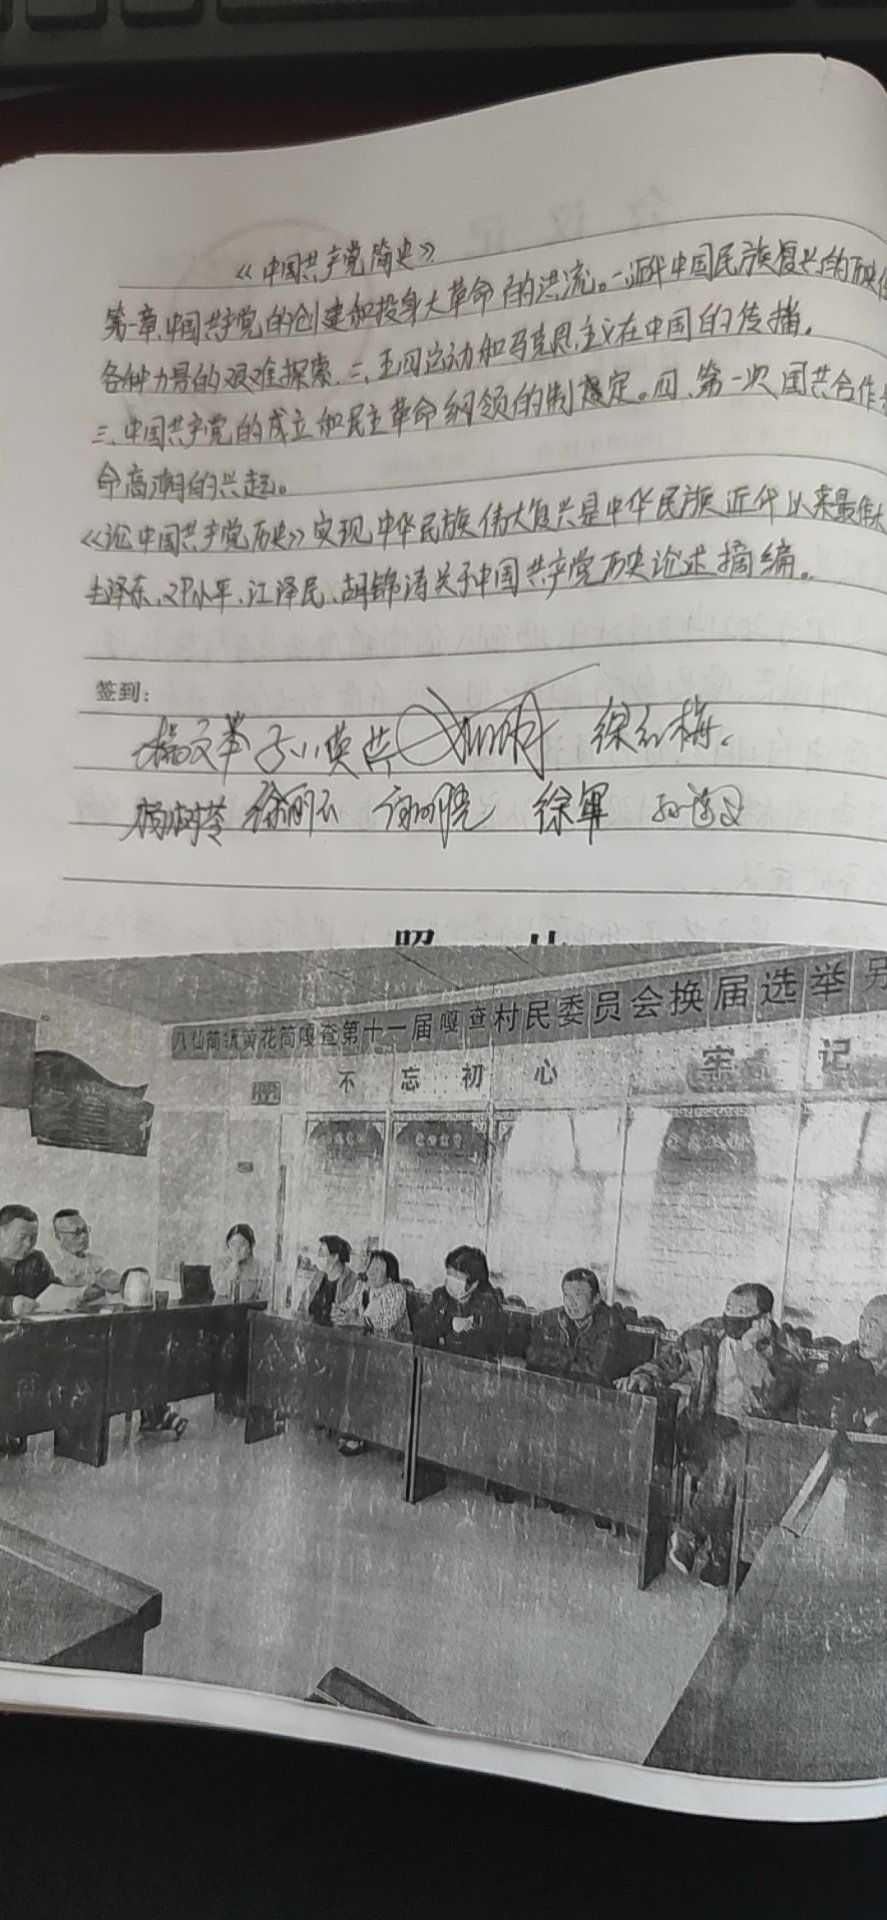 《中国共产党简史》
第一章、中国共产党的创建和投身大革命的洪流。一、近代中国民族复兴的历史
各种力量的艰难探索、二、五四运动和马克思主义在中国的传播。
三、中国共产党的成立和民主革命纲领的制定。四、第一次国共合作
命高潮的兴起。
《论中国共产党历史》实现中华民族伟大复兴是中华民族近代以来最伟大
毛泽东、邓小平、江泽民、胡锦涛关于中国共产党历史论述摘编。
签到:
徐红梅
徐丽云 徐军
照 片
八仙筒镇黄花筒嘎查第十一届嘎查村民委员会换届选举
不忘初心 牢记